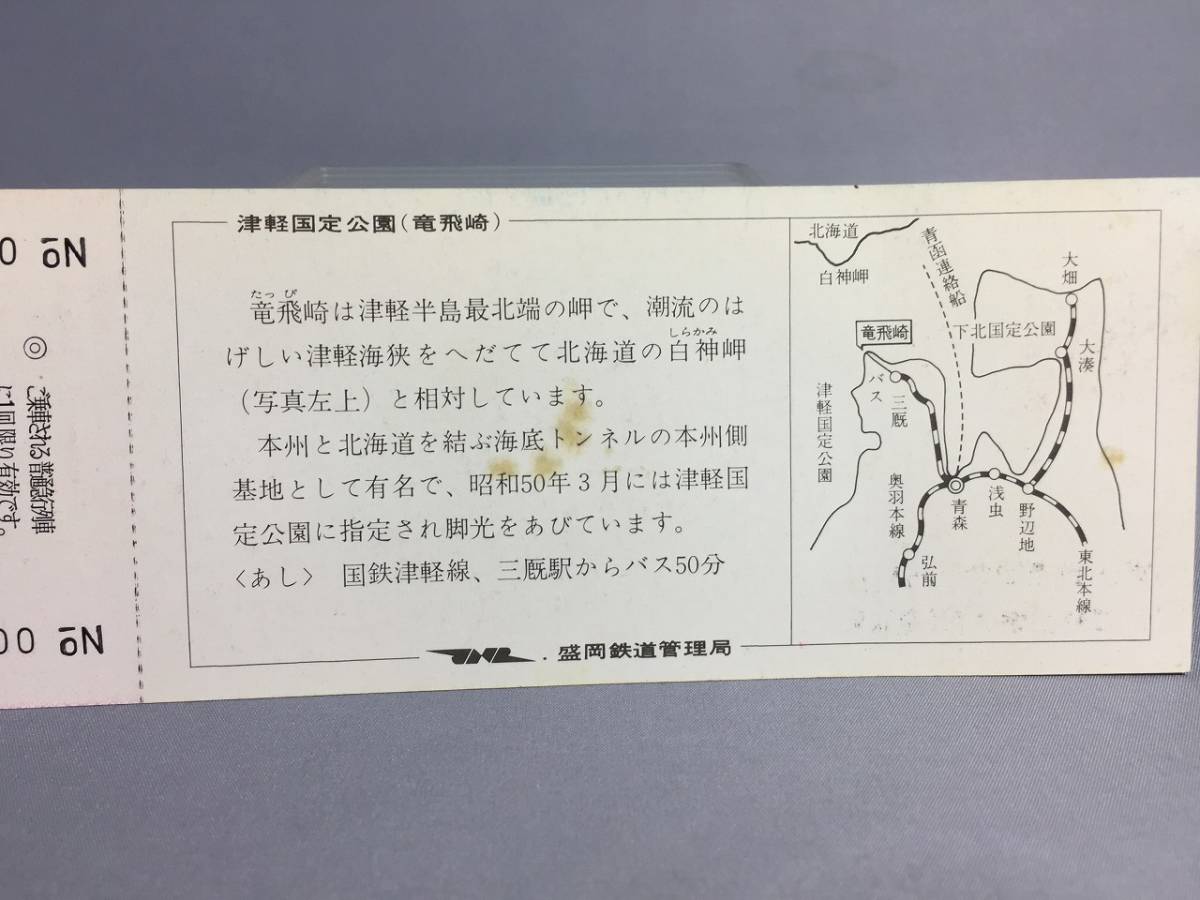 No 0
◎
ご乗車される普通急行列車
に1回限り有効です。
No 00
津軽国定公園(竜飛崎)
たっぴ
竜飛崎は津軽半島最北端の岬で、潮流のは
しらかみ
げしい津軽海狭をへだてて北海道の白神岬
(写真左上)と相対しています。
本州と北海道を結ぶ海底トンネルの本州側
基地として有名で、昭和50年3月には津軽国
定公園に指定され脚光をあびています。
〈あし〉 国鉄津軽線、三厩駅からバス50分
JNR . 盛岡鉄道管理局
北海道
白神岬
青函連絡船
大畑
下北国定公園
大湊
竜飛崎
バス
三厩
津軽国定公園
奥羽本線
青森
浅虫
野辺地
弘前
東北本線